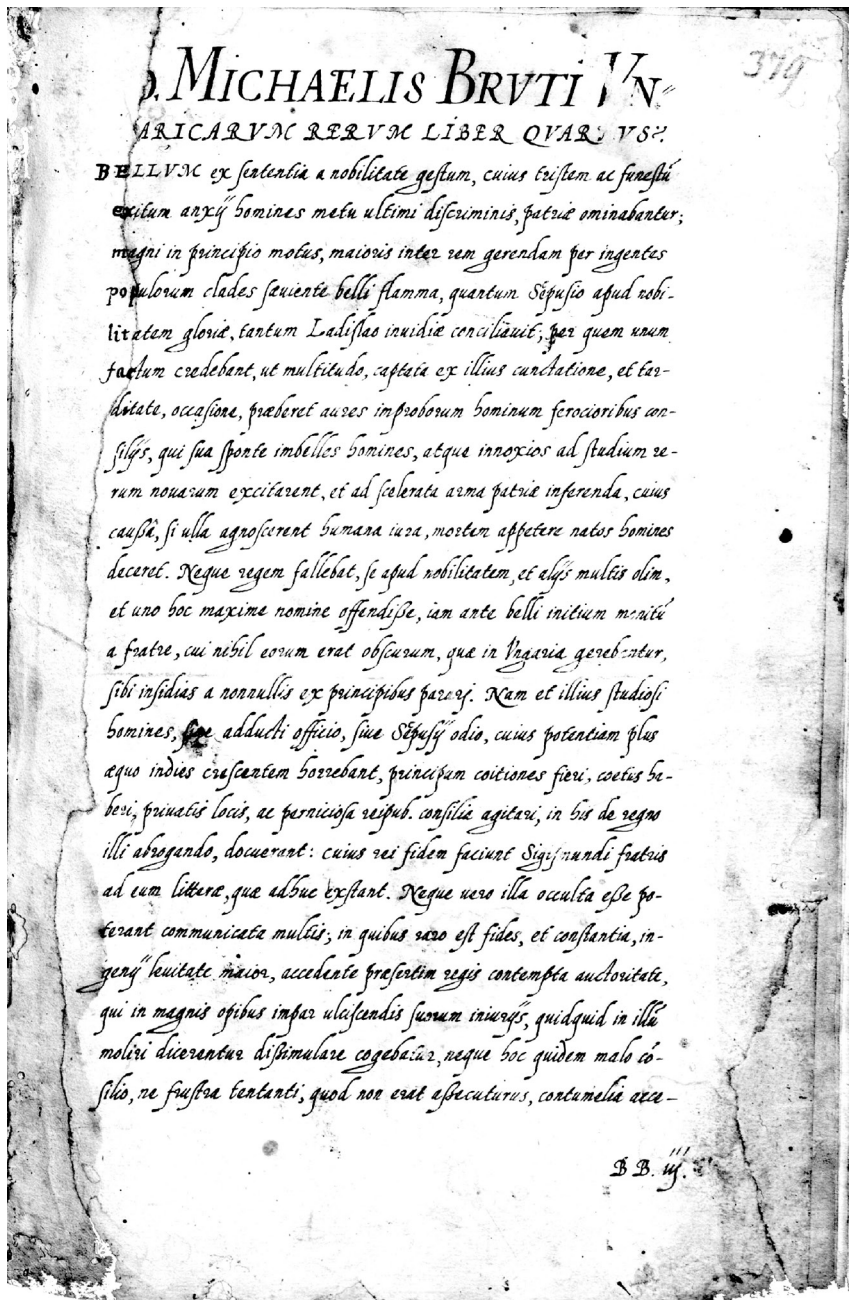 379
O. MICHAELIS BRVTI VN-
ARICARVM RERVM LIBER QVARTVS.
BELLVM ex sententia a nobilitate gestum, cuius tristem ac funestū
exitum anxij homines metu ultimi discriminis, patriæ ominabantur;
magni in principio motus, maioris inter rem gerendam per ingentes
populorum clades sæuiente belli flamma, quantum Sepusio apud nobi-
litatem gloriæ, tantum Ladislao inuidiæ conciliauit; per quem unum
factum credebant, ut multitudo, captata ex illius cunctatione, et tar-
ditate, occasione, præberet aures improborum hominum ferocioribus con-
silijs, qui sua sponte imbelles homines, atque innoxios ad studium re-
rum nouarum excitarent, et ad scelerata arma patriæ inferenda, cuius
caussâ, si ulla agnoscerent humana iura, mortem appetere natos homines
deceret. Neque regem fallebat, se apud nobilitatem, et alijs multis olim,
et uno hoc maxime nomine offendisse, iam ante belli initium monitū
a fratre, cui nihil eorum erat obscurum, quæ in Vngaria gerebantur,
sibi insidias a nonnullis ex principibus parari. Nam et illius studiosi
homines, siue adducti officio, siue Sepusij odio, cuius potentiam plus
æquo indies crescentem horrebant, principum coitiones fieri, coetus ha-
beri, priuatis locis, ac perniciosa reipub. consilia agitari, in his de regno
illi abrogando, docuerant: cuius rei fidem faciunt Sigismundi fratris
ad eum litteræ, quæ adhuc exstant. Neque uero illa occulta esse po-
terant communicata multis; in quibus raro est fides, et constantia, in-
genij leuitate maior, accedente præsertim regis contempta auctoritate,
qui in magnis opibus impar ulciscendis suorum iniurijs, quidquid in illū
moliri dicerentur dissimulare cogebatur, neque hoc quidem malo cō-
silio, ne frustra tentanti, quod non erat assecuturus, contumelia acce-
B B. iij.